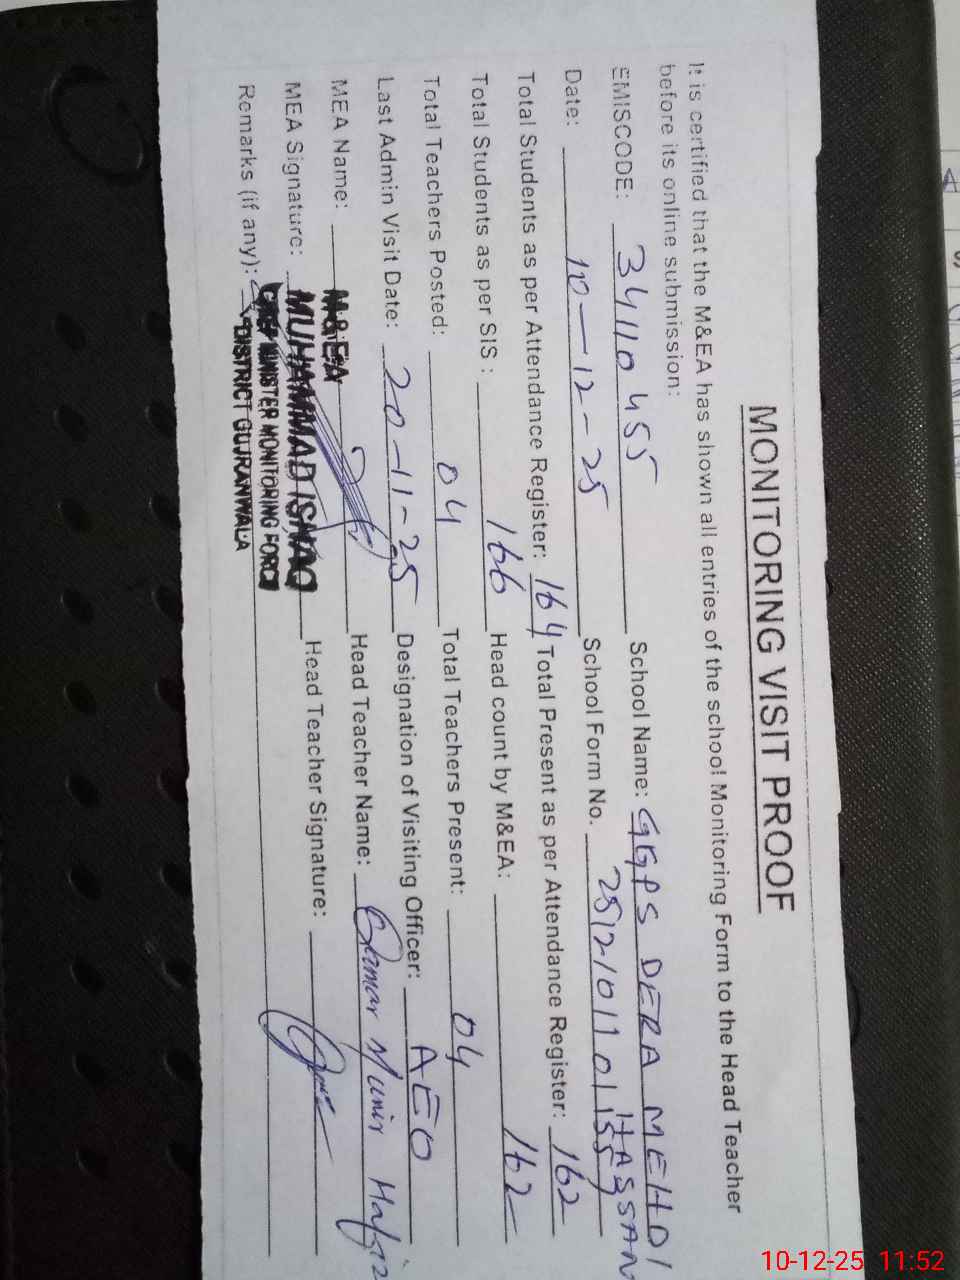 MONITORING VISIT PROOF
It is certified that the M&EA has shown all entries of the school Monitoring Form to the Head Teacher
before its online submission:
EMISCODE: 34110455 School Name: GGPS DERA MEHDI HASSAN
Date: 10-12-25 School Form No.
Total Students as per Attendance Register: 164 Total Present as per Attendance Register: 162
Total Students as per SIS: 166 Head count by M&EA: 162
Total Teachers Posted: 04 Total Teachers Present: 04
Last Admin Visit Date: 20-11-25 Designation of Visiting Officer: AEO
MEA Name: M&EA Head Teacher Name: Munir
MEA Signature: MUHAMMAD ISHAQ Head Teacher Signature:
Remarks (if any): CHIEF MINISTER MONITORING FORCE
DISTRICT GUJRANWALA
10-12-25 11:52